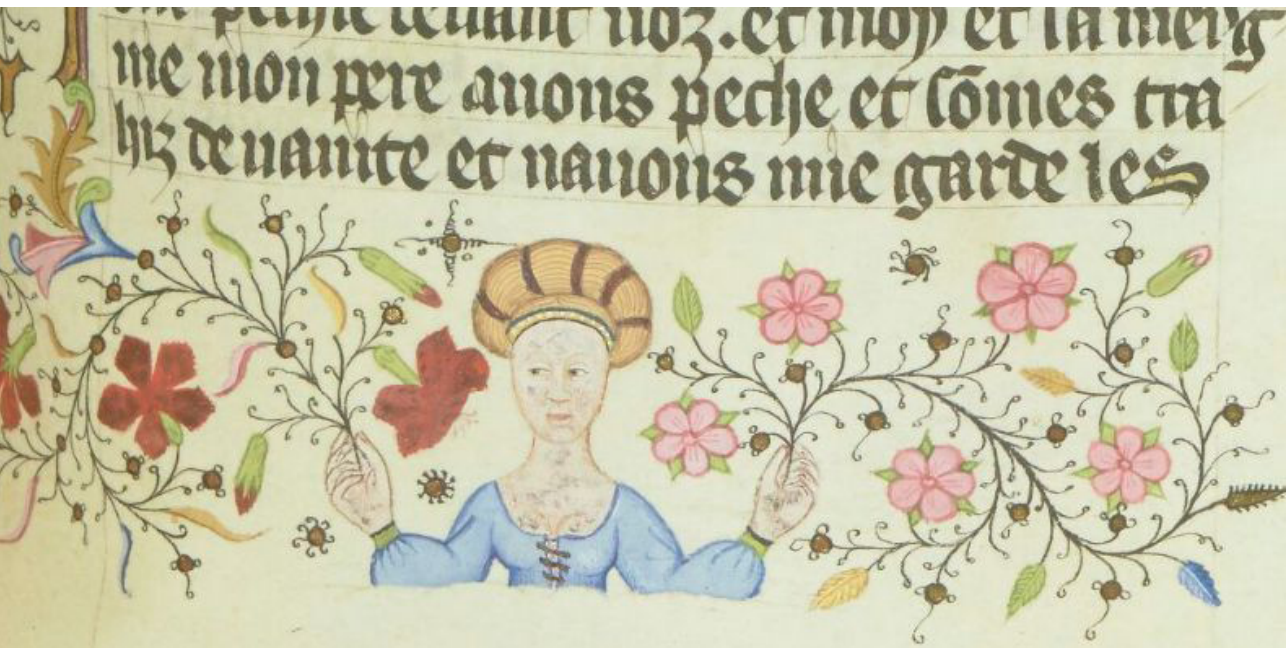 pechie deuant uoz. et moy et la meig
nie mon pere auons peche et sōmes tra
hiz de uanite et nauons mie garde les